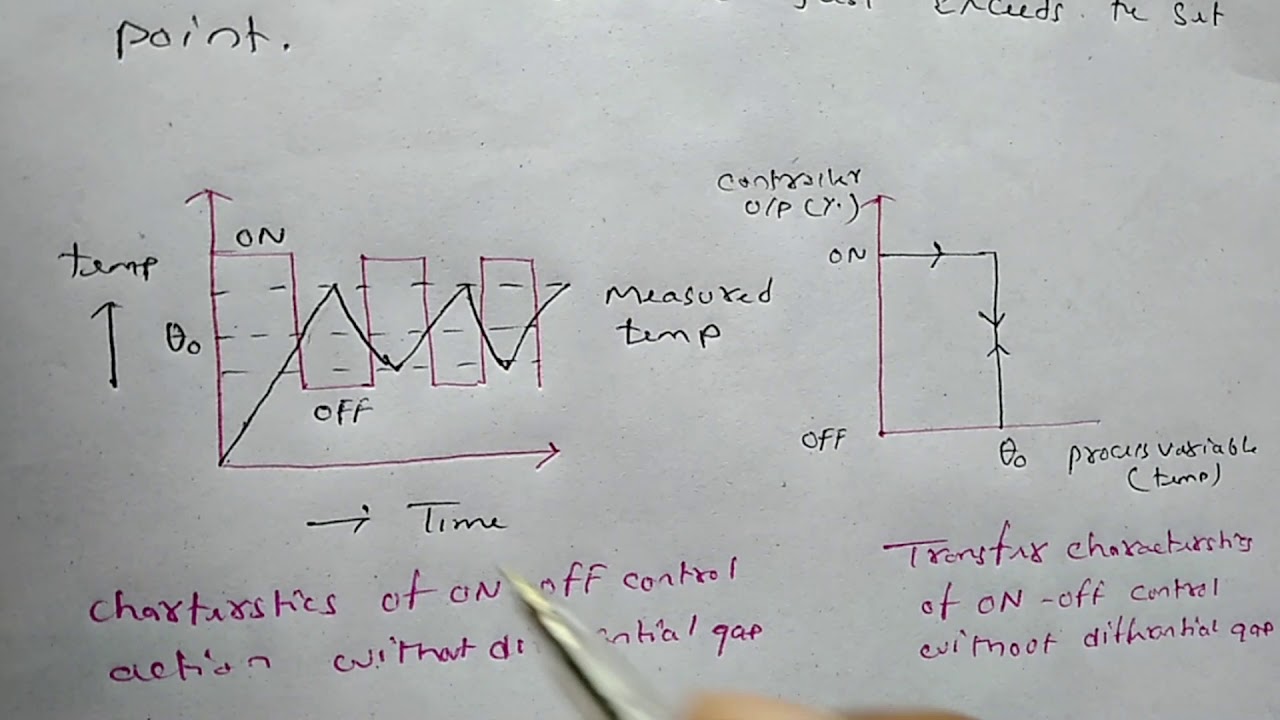 exceeds the set
point.
ON
temp
θo
OFF
Measured
temp
Time
Controller
O/P (%)
ON
OFF
θo
process variable
(temp)
charterstics of ON OFF control
action without di ntial gap
Transfer characterstics
of ON-OFF control
without differantial gap